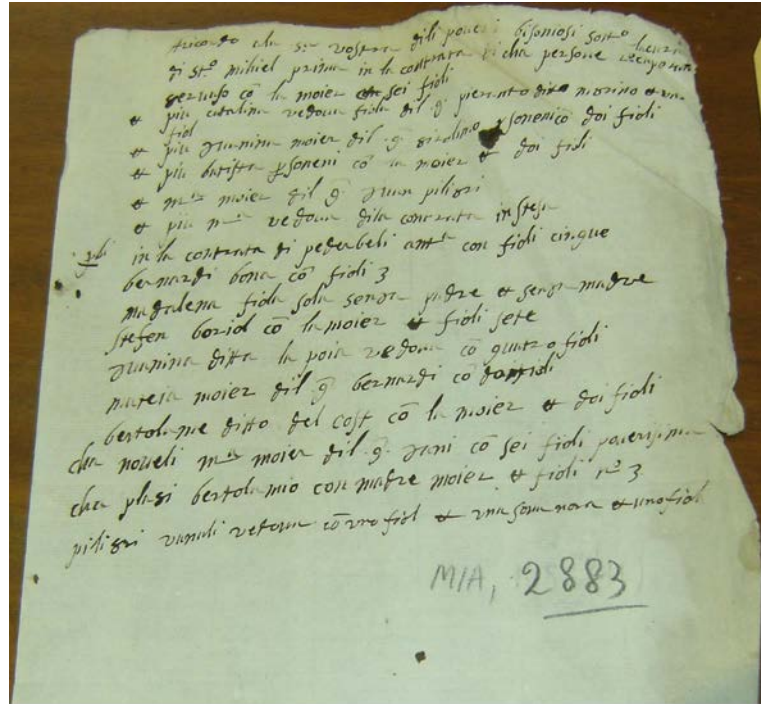 aricordo ala s.ria vostra dili poueri bisoniosi soto la cura
di st.o mihiel prima in la contrata di cha persone
geruaso cō la moier et sei fioli
et più catalina vedoua fiola dil q. pieranto dito morino et una
fiol
et più moier dil q. doi fioli
et più batista psoneni cō la moier et doi fioli
et m.a moier dil q. Juan piligri
et più m.a vedoua dila contrata instesa
in la contrata di pederbeli ant.a con fioli cinque
bernardi bona cō fioli 3
madalena fiola sola senza padre et senza madre
stefen boriol cō la moier et fioli sete
Juanina ditta la poia vedoua cō quatro fioli
moier dil q. bernardi cō doi fioli
bertolame ditto del cost cō la moier et doi fioli
cha noueli m.a moier dil q. Jani cō sei fioli pouerissima
cha plasi bertolamio con madre moier et fioli n.o 3
piligri vedoua cō vno fiol et vna soua nora et uno fiol
M/A, 2883